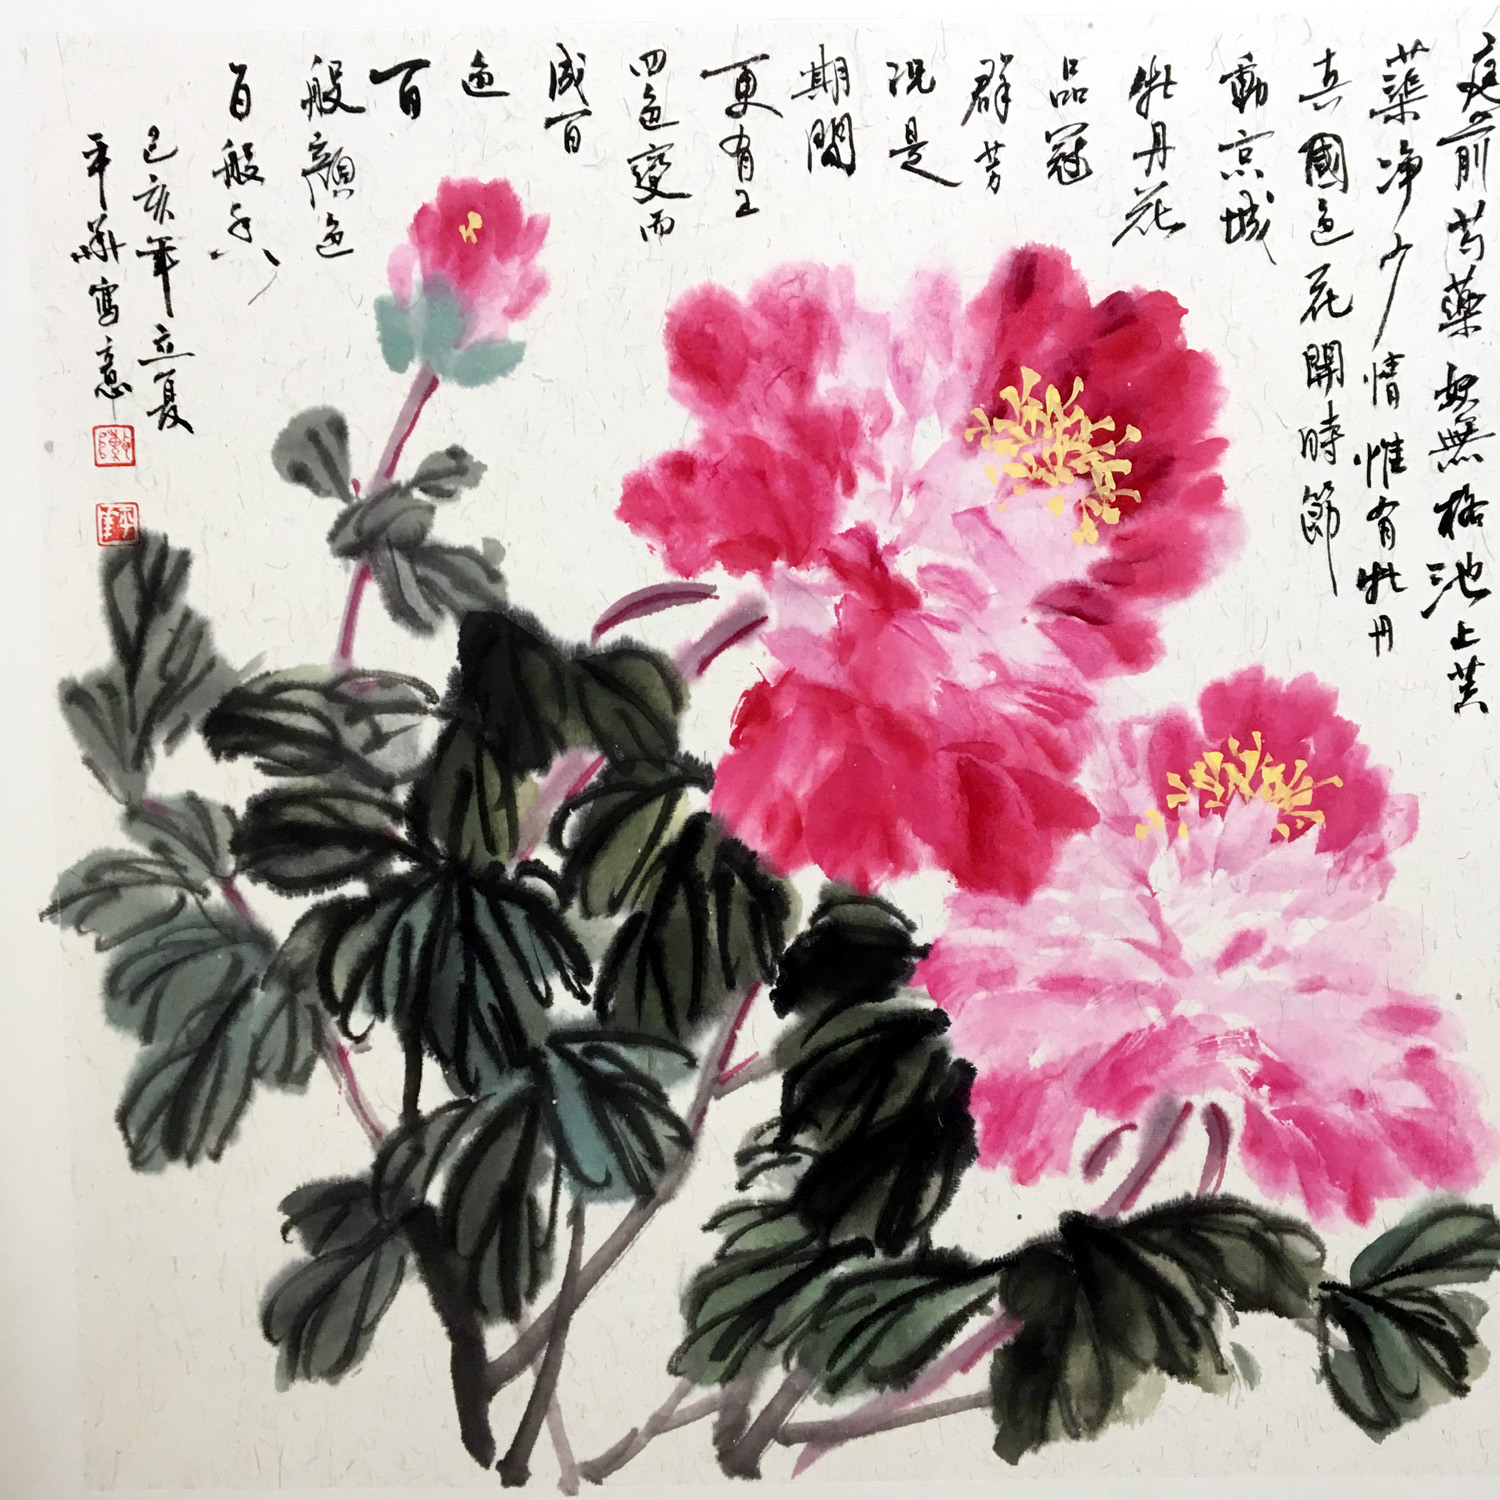 庭前芍藥妖無格池上芙
蕖净少情惟有牡丹
真國色花開時節
動京城
牡丹花
品冠
群芳
況是
期間
更有王
四色變而
成百
色
百
般顏色
百般香
己亥年立夏
平華寫意
陳